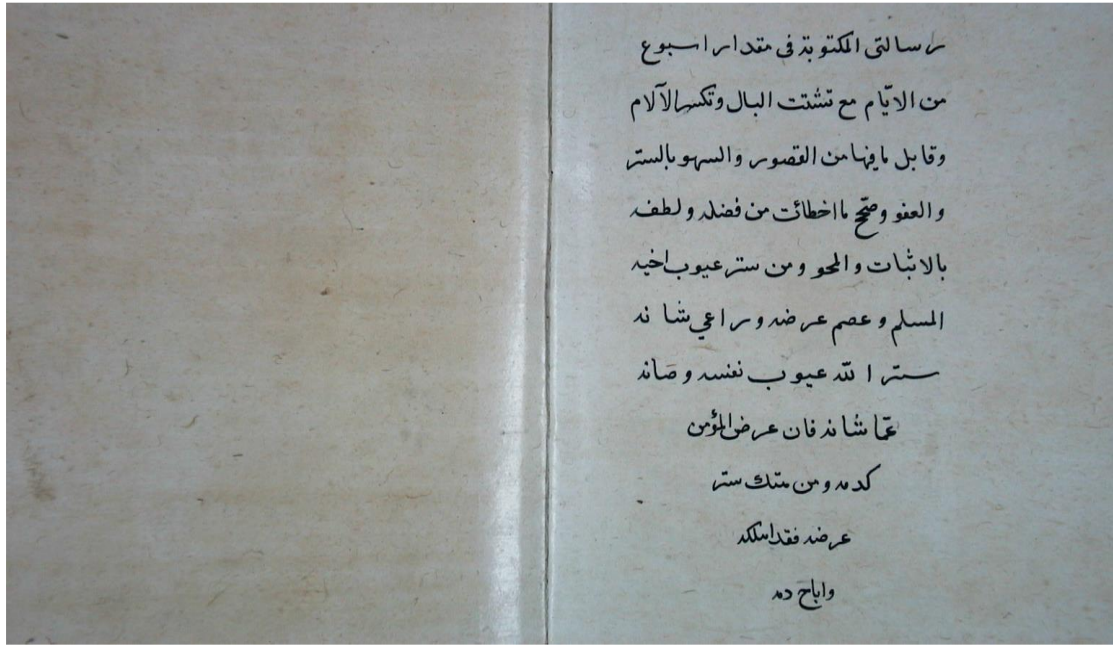 رسالتى المكتوبة فى مقدار اسبوع
من الايّام مع تشتت البال وتكسر الآلام
وقابل مافيها من القصور والسهو بالستر
والعفو وصحّح مااخطائت من فضله ولطفه
بالاثبات والمحو ومن ستر عيوب اخيه
المسلم وعصم عرضه وراعي شانه
ستر الله عيوب نفسه وصانه
عمّا شانه فان عرض المؤمن
كدمه ومن هتك ستر
عرضه فقد اهلكه
واباح دمه